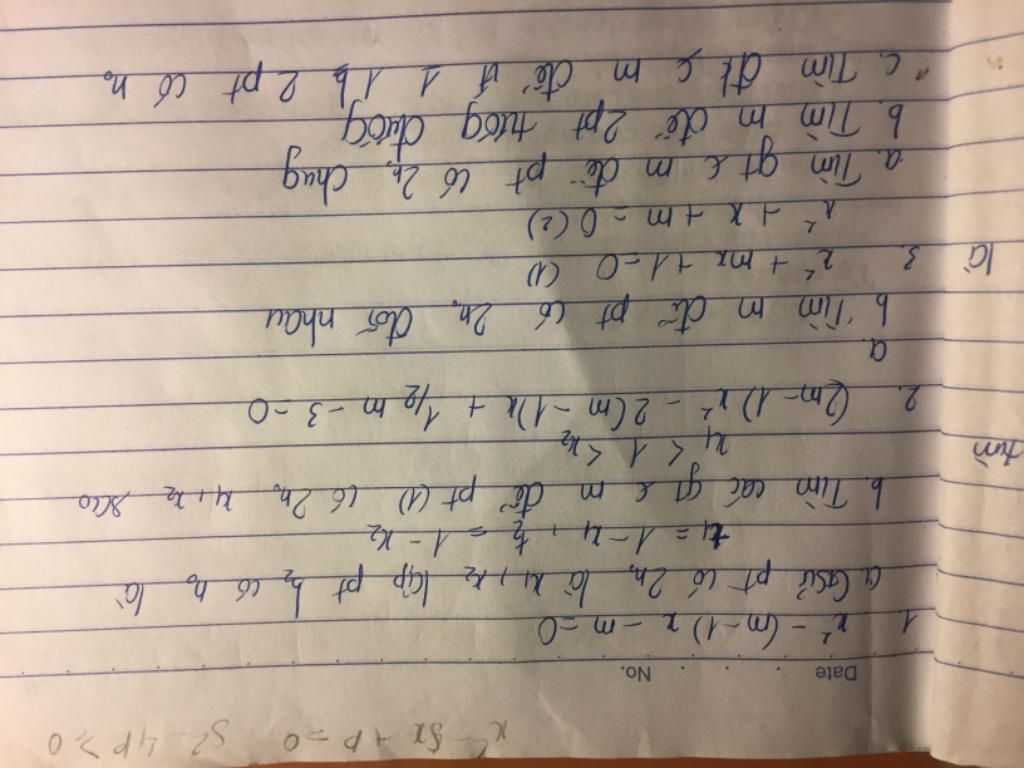 x² - Sx + P = 0 S² - 4P ≥ 0
Date No.
1 x² - (m-1)x - m = 0
a. Gsử pt có 2n₀ là x₁, x₂ lập pt b₂ có n₀ là
t₁ = 1 - x₁, t₂ = 1 - x₂
b. Tìm các gt m để pt (1) có 2n₀ x₁, x₂ sao
tìm x₁ < 1 < x₂
2. (2m-1)x² - 2(m-1)x + 1/2 m - 3 = 0
a
b Tìm m để pt có 2n₀ đối nhau
là 3. x² + mx + 1 = 0 (1)
x² + x + m = 0 (2)
a. Tìm gt m để pt có 2n₀ chug
b. Tìm m để 2pt tươg đươg
c. Tìm đk m để ít 1 2 pt có n₀